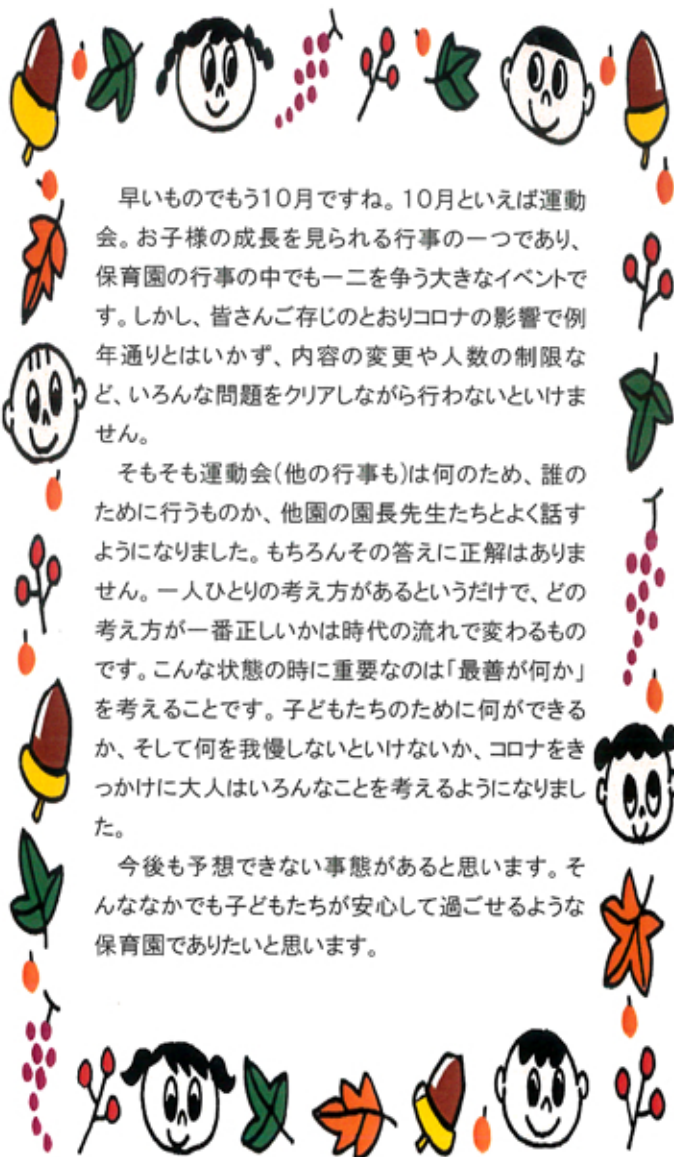 早いものでもう10月ですね。10月といえば運動
会。お子様の成長を見られる行事の一つであり、
保育園の行事の中でも一二を争う大きなイベントで
す。しかし、皆さんご存じのとおりコロナの影響で例
年通りとはいかず、内容の変更や人数の制限な
ど、いろんな問題をクリアしながら行わないといけま
せん。
そもそも運動会(他の行事も)は何のため、誰の
ために行うものか、他園の園長先生たちとよく話す
ようになりました。もちろんその答えに正解はありま
せん。一人ひとりの考え方があるというだけで、どの
考え方が一番正しいかは時代の流れで変わるもの
です。こんな状態の時に重要なのは「最善が何か」
を考えることです。子どもたちのために何ができる
か、そして何を我慢しないといけないか、コロナをき
っかけに大人はいろんなことを考えるようになりまし
た。
今後も予想できない事態があると思います。そ
んななかでも子どもたちが安心して過ごせるような
保育園でありたいと思います。